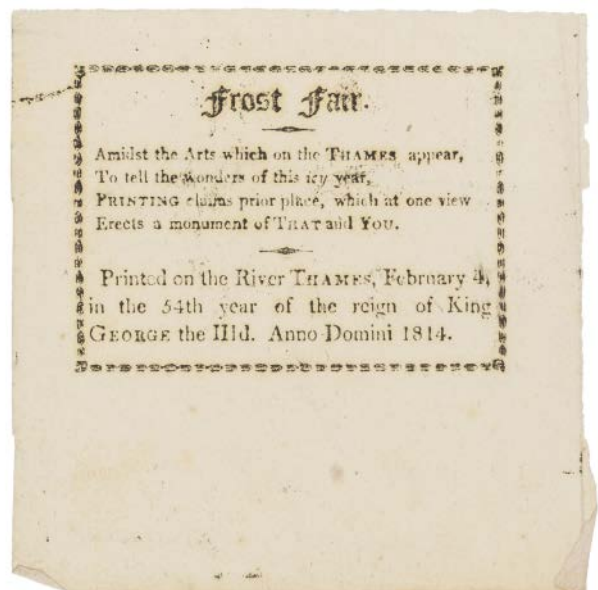 Frost Fair.
Amidst the Arts which on the THAMES appear,
To tell the wonders of this icy year,
PRINTING claims prior place, which at one view
Erects a monument of THAT and YOU.
Printed on the River THAMES, February 4,
in the 54th year of the reign of King
GEORGE the IIId. Anno Domini 1814.